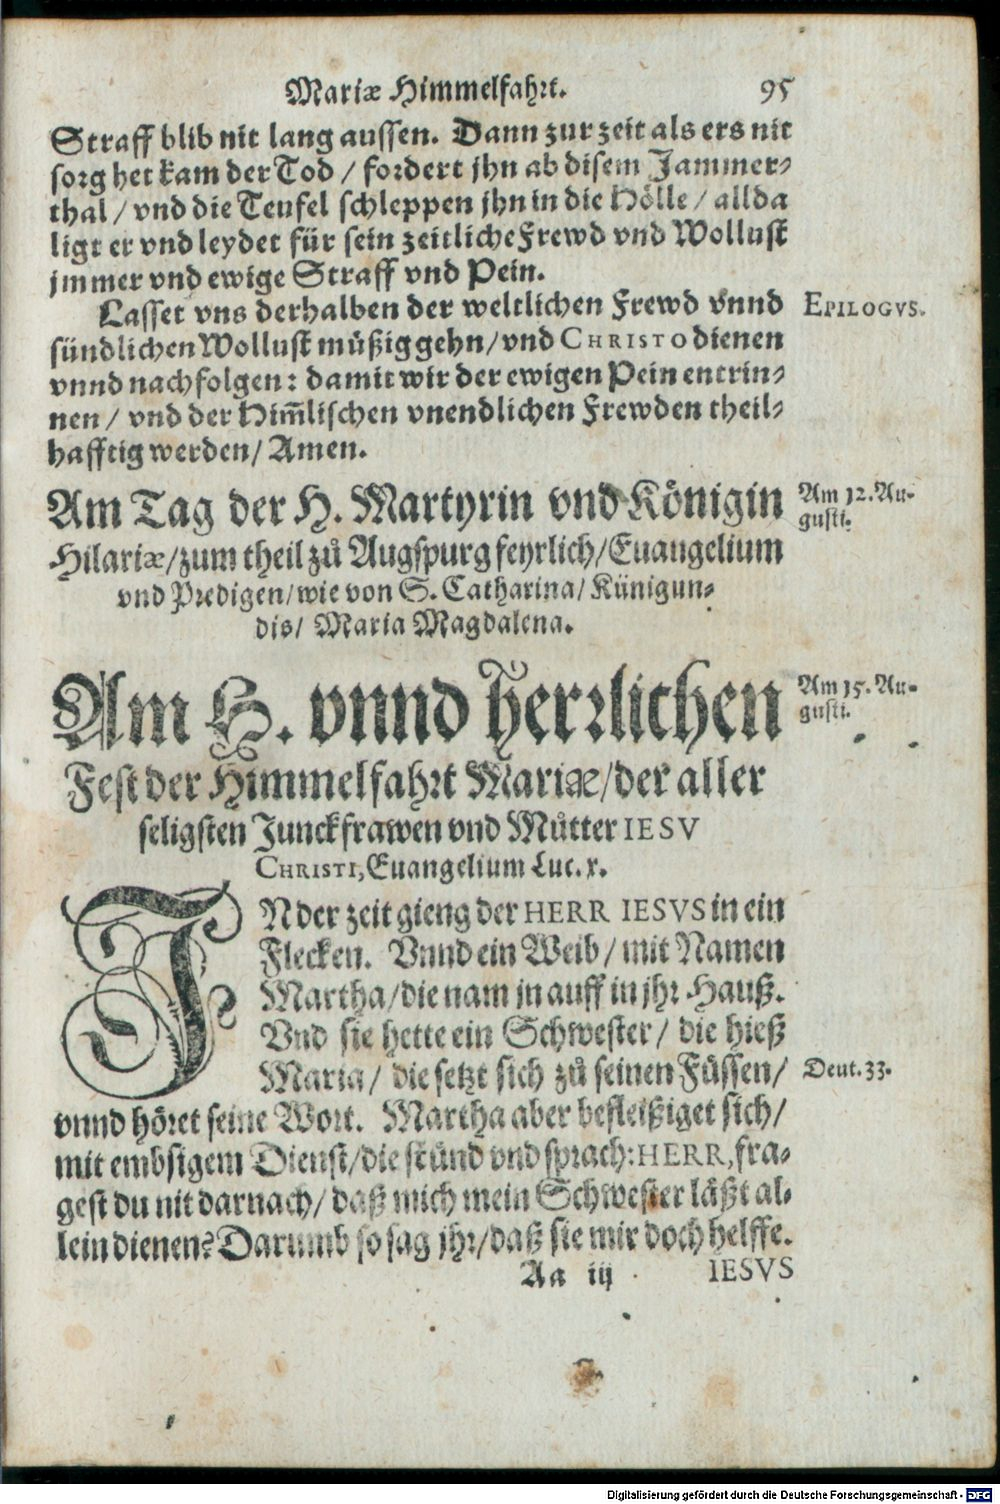 Mariæ Himmelfahrt. 95
Straff blib nit lang aussen. Dann zur zeit als ers nit
sorg het kam der Tod / fordert jhn ab disem Jammer-
thal / vnd die Teufel schleppen jhn in die Hölle / allda
ligt er vnd leydet für sein zeitliche Frewd vnd Wollust
jmmer vnd ewige Straff vnd Pein.
Lasset vns derhalben der weltlichen Frewd vnnd
EPILOGVS.
sündlichen Wollust müßig gehn / vnd CHRISTO dienen
vnnd nachfolgen: damit wir der ewigen Pein entrin-
nen / vnd der Him̄lischen vnendlichen Frewden theil-
hafftig werden / Amen.
Am Tag der H. Martyrin vnd Königin
Am 12. Au-
gusti.
Hilariæ / zum theil zů Augspurg feyrlich / Euangelium
vnd Predigen / wie von S. Catharina / Künigun-
dis / Maria Magdalena.
Am H. vnnd herrlichen
Am 15. Au-
gusti.
Fest der Himmelfahrt Mariæ / der aller
seligsten Junckfrawen vnd Můtter IESV
CHRISTI, Euangelium Luc. x.
IN der zeit gieng der HERR IESVS in ein
Flecken. Vnnd ein Weib / mit Namen
Martha / die nam jn auff in jhr Hauß.
Vnd sie hette ein Schwester / die hieß
Maria / die setzt sich zů seinen Füssen /
Deut. 33.
vnnd höret seine Wort. Martha aber befleißiget sich /
mit embsigem Dienst / die stůnd vnd sprach: HERR, fra-
gest du nit darnach / daß mich mein Schwester läßt al-
lein dienen? Darumb so sag jhr / daß sie mir doch helffe.
Aa iij IESVS
Digitalisierung gefördert durch die Deutsche Forschungsgemeinschaft - DFG